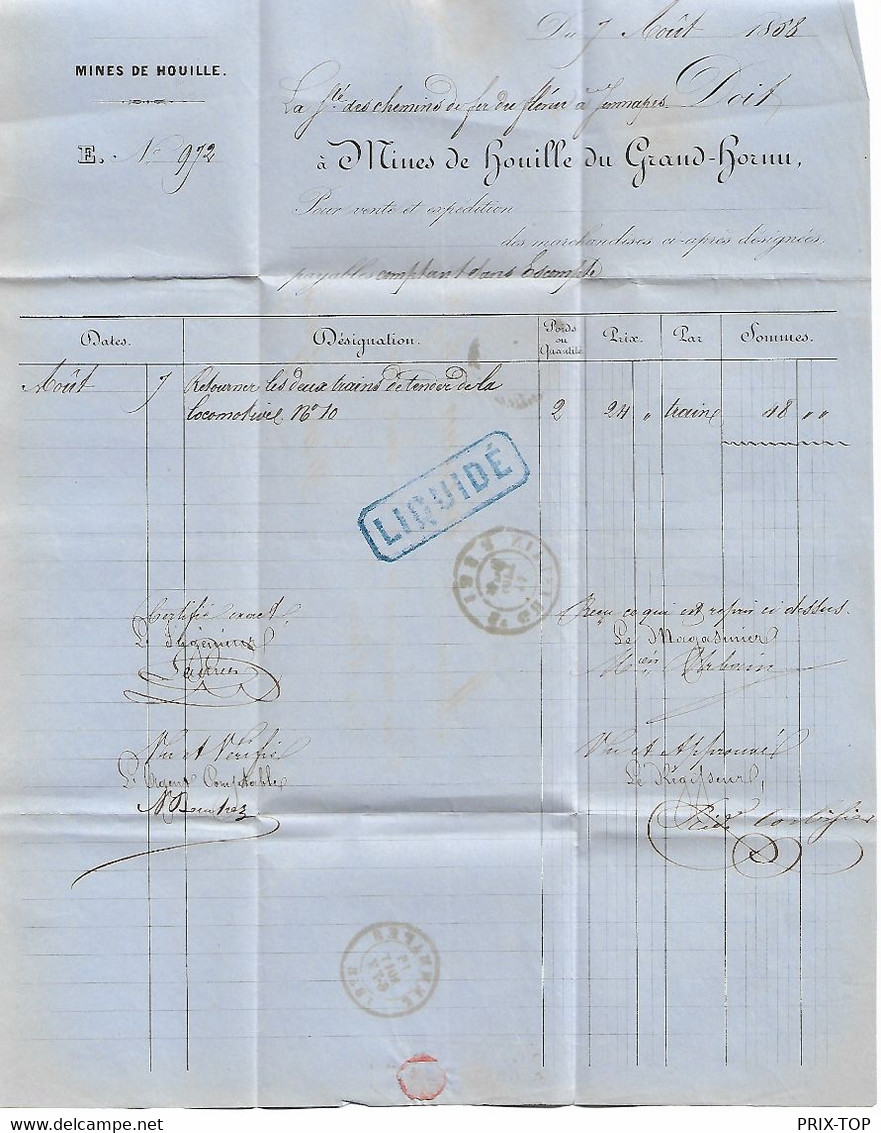 Du 7 Août 1858
MINES DE HOUILLE.
La Sté des chemins de fer du flénu à Jemmapes Doit
E. No 972
à Mines de Houille du Grand-Hornu,
Pour vente et expédition
des marchandises ci-après désignées,
payables comptant sans Escompte
Dates. Désignation. Poids ou Quantité Prix. Par Sommes.
Août 7 Retourner les deux trains de tender de la
locomotive No 10 2 24 " train 48 " "
LIQUIDÉ
1858
Certifié exact,
L'Ingénieur
Reçu ce qui est repris ci dessus.
Le Magasinier
Urbain
Vu et Vérifié
L'Agent Comptable
Vu et Approuvé
Le Régisseur,
JEMMAPES
PRIX-TOP